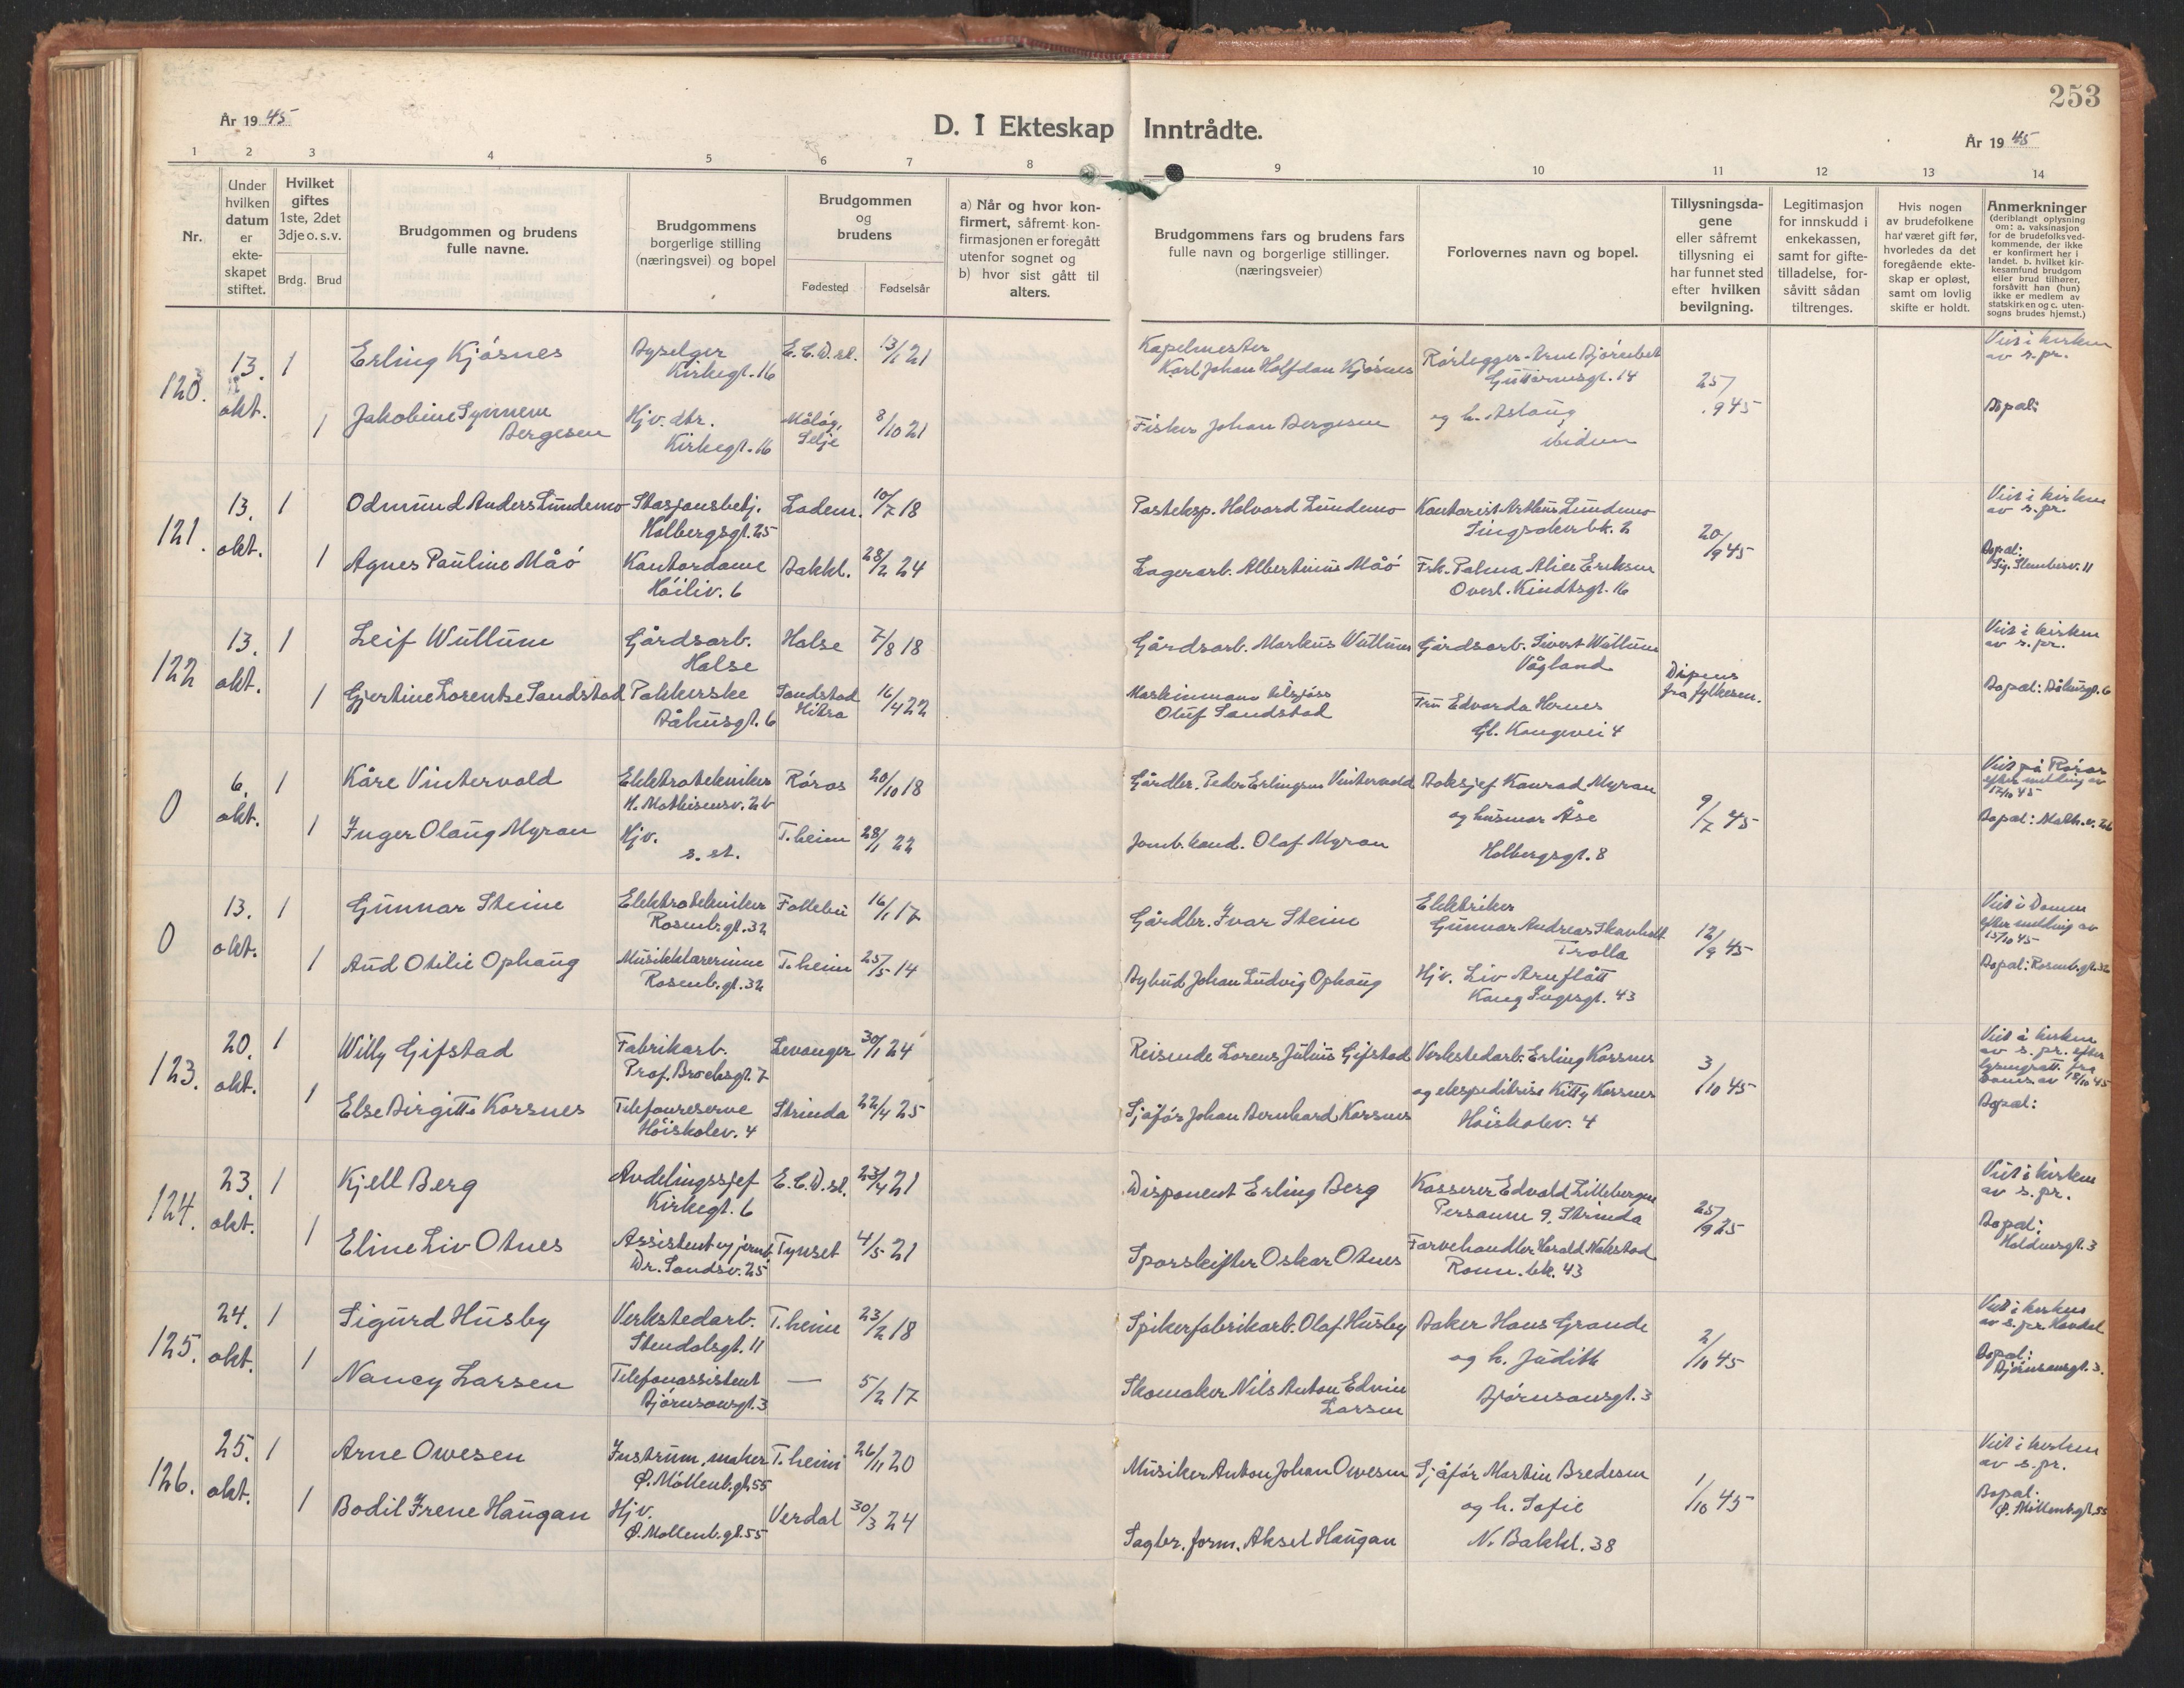 253
År 1945
D. I Ekteskap Inntrådte.
År 1945
1 2 3 4 5 6 7 8 9 10 11 12 13 14
Nr.
Under hvilken datum er ekte-skapet stiftet.
Hvilket giftes 1ste, 2det 3dje o. s. v.
Brdg. Brud
Brudgommen og brudens fulle navne.
Brudgommens borgerlige stilling (næringsvei) og bopel
Brudgommen og brudens
Fødested Fødselsår
a) Når og hvor kon-firmert, såfremt kon-firmasjonen er foregått utenfor sognet og b) hvor sist gått til alters.
Brudgommens fars og brudens fars fulle navn og borgerlige stillinger. (næringsveier)
Forlovernes navn og bopel.
Tillysningsda-gene eller såfremt tillysning ei har funnet sted efter hvilken bevilgning.
Legitimasjon for innskudd i enkekassen, samt for gifte-tilladelse, for-såvitt sådan tiltrenges.
Hvis nogen av brudefolkene har været gift før, hvorledes da det foregående ekte-skap er opløst, samt om lovlig skifte er holdt.
Anmerkninger (deriblandt oplysning om: a. vaksinasjon for de brudefolks ved-kommende, der ikke er konfirmert her i landet. b. hvilket kir-kesamfund brudgom eller brud tilhører, forsåvitt han (hun) ikke er medlem av statskirken og c. uten-sogns brudes hjemst.)
120. 13. okt. 1 Erling Kjøsnes
Kirkegt. 16
E.C.D.sl. 13/1 21
Kapelmester
Karl Johan Halfdan Kjøsnes
Rørlegger Arne
Guttormsgt. 14
25/9 45
Viet i kirken
av s. pr.
1 Jakobine Synnøve
Bergesen
Hj.v. dtr.
Kirkegt. 16
Måløy,
Selje
8/10 21
Fisker Johan Bergesen
og h. Aslaug
ibidem
Bopæl:
121. 13. okt. 1 Odmund Anders Lundemo
Stasjonsbetj.
Holbergsgt. 25
Ladem. 10/7 18
Posteksp. Halvard Lundemo
Kontorist Arthur Lundemo
Singsakerbk. 2
20/9 45
Viet i kirken
av s. pr.
1 Agnes Pauline Måø
Kontordame
Høiliv. 6
Bakkl. 28/2 24
Lagerarb. Albertinus Måø
Frk. Palma Alice Eriksen
Overl. Kindtsgt. 16
Bopæl:
122 13. okt. 1 Leif Wullum
Gårdsarb.
Halse
Halse 7/8 18
Gårdsarb. Markus Wullum
Gårdsarb. Sivert Wullum
Vågland
Dispens
fra fylkesm.
Viet i kirken
av s. pr.
1 Gjertine Lorentse Sandstad
Pakkerske
Båhusgt. 6
Sandstad
Hitra
16/4 22
Maskinmann
Oluf Sandstad
Fru Edvarda Hernes
Gl. Kongevei 4
Bopæl: Båhusgt. 6
0 6. okt. 1 Kåre Vintervold
Elektrotekniker
H. Mathisensv. 2b
Røros 20/10 18
Gårdbr. Peder Erlingsen Vintervold
Boksjef Konrad Myran
og husmor Åse
9/7 45
Viet på Røros
efter melding av
12/10 45
1 Inger Olaug Myran
Hjv.
s. st.
T.heim 28/1 22
Jernb. kand. Olaf Myran
Holbergsgt. 8
Bopæl: Math.v. 2b
0 13. okt. 1 Gunnar Steine
Elektrotekniker
Rosenb.gt. 32
Follebu 16/1 17
Gårdbr. Ivar Steine
Elektriker
Gunnar Andreas Skavhalt
Trolla
12/9 45
Viet i Domen
efter melding av
15/10 45
1 Aud Otilie Ophaug
Musikklærerinne
Rosenb.gt. 32
T.heim 25/5 14
Bybud Johan Ludvig Ophaug
Hjv. Liv Arnflått
Kong Ingesgt. 43
Bopæl: Rosenb.gt. 32
123. 20. okt. 1 Willy Gifstad
Fabrikarb.
Prof. Brochsgt. 7
Levanger 30/1 24
Reisende Lorens Julius Gifstad
Verkstedarb. Erling Korsnes
3/10 45
Viet i kirken
av s. pr. efter
18/10 45
1 Else Birgitte Korsnes
Telefonreserve
Høiskolev. 4
Strinda 22/4 25
Sjåfør Johan Bernhard Korsnes
og ekspeditrise Kitty Korsnes
Høiskolev. 4
Bopæl:
124. 23. okt. 1 Kjell Berg
Avdelingssjef
Kirkegt. 6
E.C.D.sl. 23/4 21
Disponent Erling Berg
Kasserer Edvald Lillebergen
Persaune 9, Strinda
25/9 25
Viet i kirken
av s. pr.
1 Eline Liv Otnes
Assistent v/ jernb.
Dr. Sandsv. 25
Tynset 4/5 21
Sporskifter Oskar Otnes
Farvehandler Harald Wakstad
Ronn. bk. 43
Bopæl:
125. 24. okt. 1 Sigurd Husby
Verkstedarb.
Stendalsgt. 11
T.heim 23/2 18
Spikerfabrikarb. Olaf Husby
Baker Hans Grande
og h. Judith
2/10 45
Viet i kirken
av s. pr.
1 Nancy Larsen
Telefonassistent
Bjørnsonsgt. 3
— 5/2 17
Skomaker Nils Anton Edvin
Larsen
Bjørnsonsgt. 3
Bopæl:
Bjørnsonsgt. 3.
126. 25. okt. 1 Arne Owesen
Instrum. maker
Ø. Møllenb.gt. 55
T.heim 26/11 20
Musiker Anton Johan Owesen
Sjåfør Martin Bredesen
og h. Sofie
1/10 45
Viet i kirken
av s. pr.
1 Bodil Irene Haugan
Hjv.
Ø. Møllenb.gt. 55
Verdal 30/3 24
Sagbr. form. Aksel Haugan
N. Bakkl. 38
Bopæl:
Ø. Møllenb.gt. 55